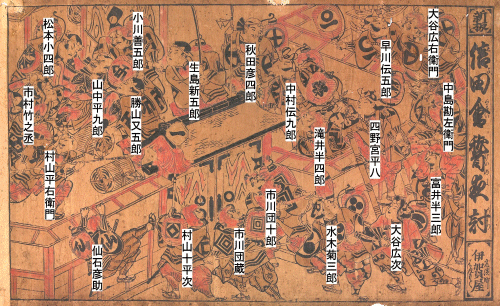 信田會
伊賀屋
大谷広右衛門
中島勘左衛門
富井半三郎
早川伝五郎
四野宮平八
大谷広次
滝井半四郎
水木菊三郎
中村伝九郎
秋田彦四郎
市川団十郎
市川団蔵
生島新五郎
村山十平次
小川善五郎
勝山又五郎
山中平九郎
仙石彦助
松本小四郎
村山平右衛門
市村竹之丞